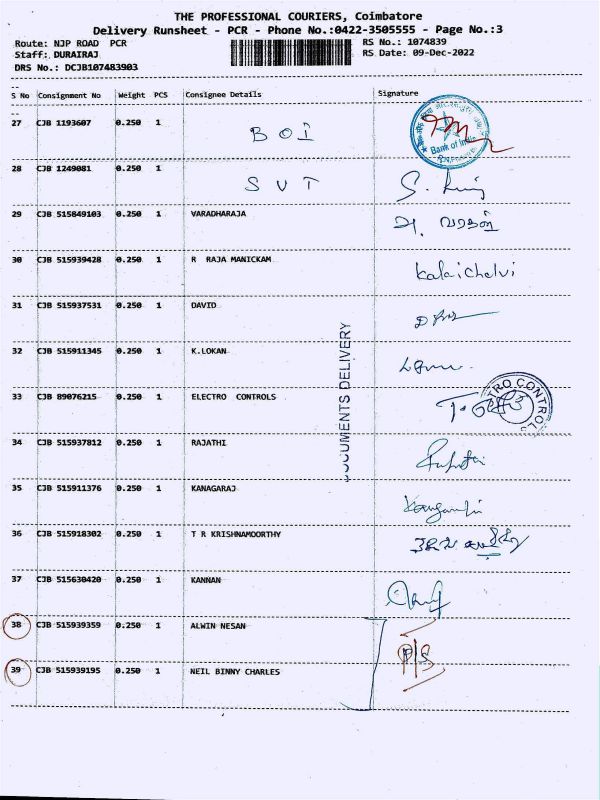 THE PROFESSIONAL COURIERS, Coimbatore
Delivery Runsheet - PCR - Phone No.:0422-3505555 - Page No.:3
Route: NJP ROAD PCR
RS No.: 1074839
Staff: DURAIRAJ
RS Date: 09-Dec-2022
DRS No.: DCJB107483903
S No Consignment No Weight PCS Consignee Details Signature
27 CJB 1193607 0.250 1 BOI
Bank of India
28 CJB 1249081 0.250 1 SVT
29 CJB 515849103 0.250 1 VARADHARAJA
30 CJB 515939428 0.250 1 R RAJA MANICKAM Kalaichelvi
31 CJB 515937531 0.250 1 DAVID
32 CJB 515911345 0.250 1 K.LOKAN
33 CJB 89076215 0.250 1 ELECTRO CONTROLS
TRO CONTROLS
34 CJB 515937812 0.250 1 RAJATHI
35 CJB 515911376 0.250 1 KANAGARAJ
36 CJB 515918302 0.250 1 T R KRISHNAMOORTHY
37 CJB 515630420 0.250 1 KANNAN
38 CJB 515939359 0.250 1 ALWIN NESAN
P/S
39 CJB 515939195 0.250 1 NEIL BINNY CHARLES
DOCUMENTS DELIVERY